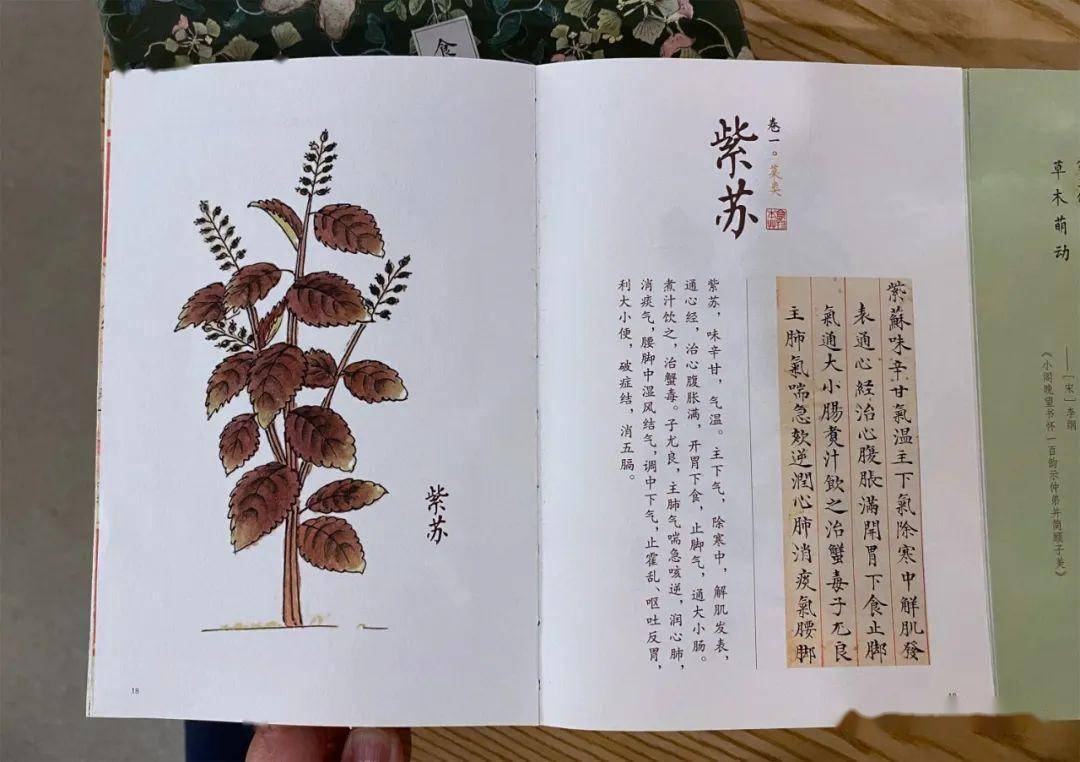 食
紫苏
18
卷一。菜类
紫苏
紫蘇味辛甘氣温主下氣除寒中解肌發
表通心經治心腹脹滿開胃下食止脚
氣通大小腸煑汁飲之治蟹毒子尤良
主肺氣喘急欬逆潤心肺消痰氣腰脚
紫苏，味辛甘，气温。主下气，除寒中，解肌发表，
通心经，治心腹胀满，开胃下食，止脚气，通大小肠。
煮汁饮之，治蟹毒。子尤良，主肺气喘急咳逆，润心肺，
消痰气，腰脚中湿风结气，调中下气，止霍乱、呕吐反胃，
利大小便，破症结，消五膈。
草木萌动
——［宋］李纲
《小阁晚望书怀一百韵示仲弟并简顾子美》